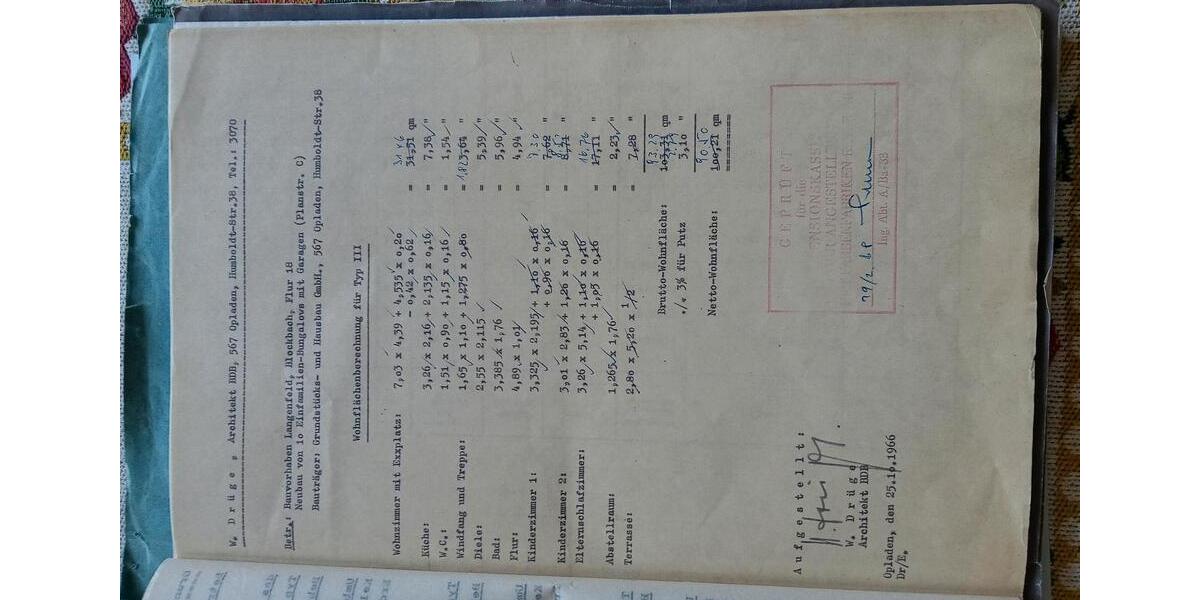 W. D r ü g e , Architekt BDB, 567 Opladen, Humboldt-Str.38, Tel.: 3070
Betr.: Bauvorhaben Langenfeld, Blockbach, Flur 18
Neubau von 1o Einfamilien-Bungalows mit Garagen (Planstr. C)
Bauträger: Grundstücks- und Hausbau GmbH., 567 Opladen, Humboldt-Str.38
Wohnflächenberechnung für Typ III
Wohnzimmer mit Exxplatz: 7,o3 x 4,39 + 4,535 x 0,20
- 0,42 x 0,62 = 31,51 qm
Küche: 3,26 x 2,16 + 2,135 x 0,16 = 7,38 "
W.C.: 1,51 x 0,90 + 1,15 x 0,16 = 1,54 "
Windfang und Treppe: 1,65 x 1,10 + 1,275 x 0,80 = 1,82 3,64 "
Diele: 2,55 x 2,115 = 5,39 "
Bad: 3,385 x 1,76 = 5,96 "
Flur: 4,89 x 1,01 = 4,94 "
Kinderzimmer 1: 3,325 x 2,195 + 1,10 x 0,16
+ 0,96 x 0,16 = 7,62 "
Kinderzimmer 2: 3,01 x 2,83 + 1,26 x 0,16 = 8,71 "
Elternschlafzimmer: 3,26 x 5,14 + 1,10 x 0,16
+ 1,05 x 0,16 = 16,76 17,11 "
Abstellraum: 1,265 x 1,76 = 2,23 "
Terrasse: 2,80 x 5,20 x 1/2 = 7,28 "
Brutto-Wohnfläche: 93,29 qm
./. 3% für Putz 3,10 "
Netto-Wohnfläche: 90,50 100,21 qm
GEPRÜFT
für die
Ing. Abt. A/Ba-33
A u f g e s t e l l t :
W. D r ü g e
Architekt BDB
Opladen, den 25.1o.1966
Dr/E.